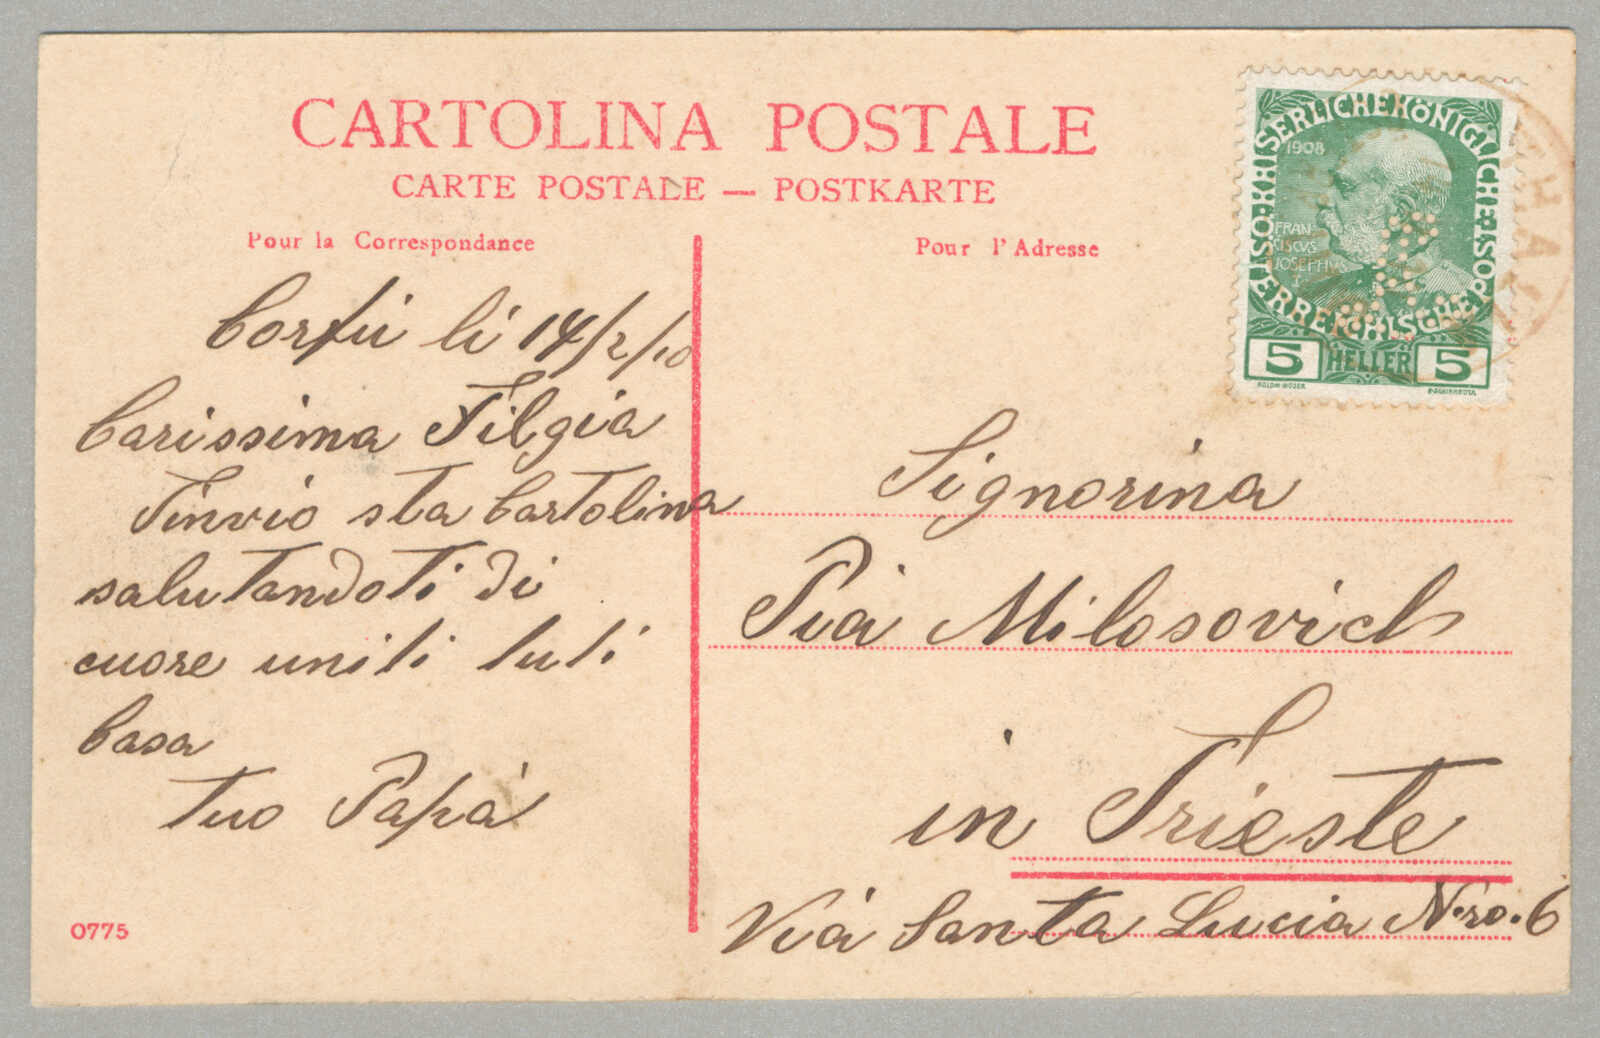 CARTOLINA POSTALE
CARTE POSTALE — POSTKARTE
Pour la Correspondance
Pour l'Adresse
Corfù li 14/2/10
Carissima Filgia
Tinvio sta Cartolina
salutandoti di
cuore uniti tuti
Casa
tuo Papà
0775
KAISERLICHE KÖNIGLICHE
ÖSTERREICHISCHE POST
1908
FRAN
CISCVS
JOSEPHVS
5 HELLER 5
Signorina
Pia Milosovich
in Trieste
Via Santa Lucia N.ro. 6